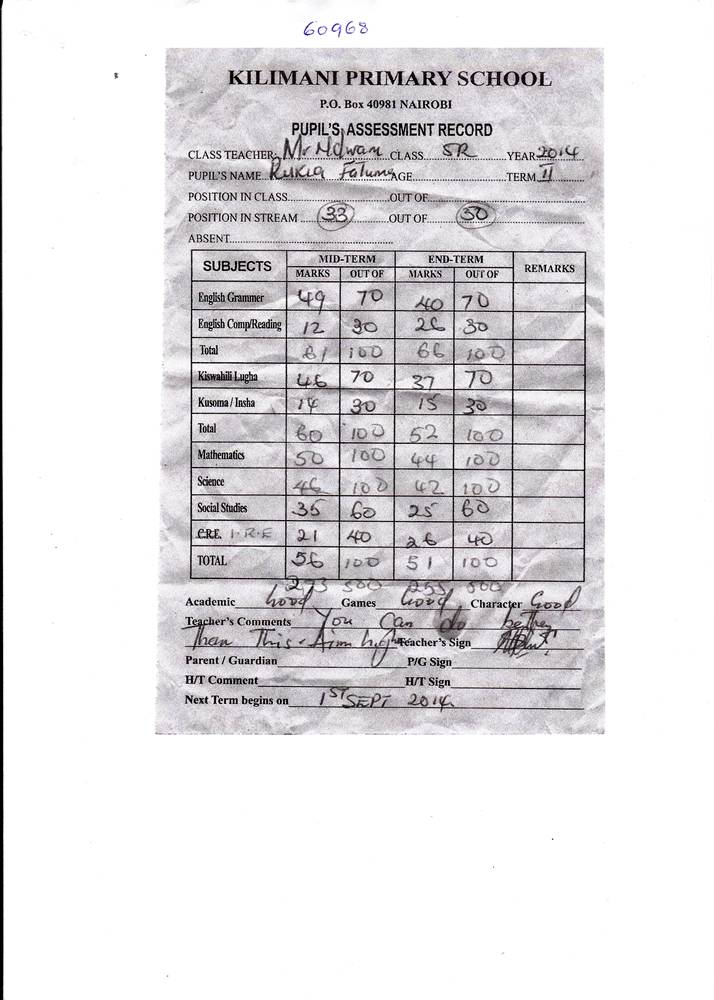 60968
KILIMANI PRIMARY SCHOOL
P.O. Box 40981 NAIROBI
PUPIL'S ASSESSMENT RECORD
CLASS TEACHER: Mr Ndwam CLASS. 5R YEAR 2014
PUPIL'S NAME Rukia Fatuma AGE TERM II
POSITION IN CLASS OUT OF
POSITION IN STREAM 33 OUT OF 50
ABSENT
SUBJECTS MID-TERM END-TERM REMARKS
MARKS OUT OF MARKS OUT OF
English Grammer 49 70 40 70
English Comp/Reading 12 30 26 30
Total 61 100 66 100
Kiswahili Lugha 46 70 37 70
Kusoma / Insha 14 30 15 30
Total 60 100 52 100
Mathematics 50 100 44 100
Science 46 100 42 100
Social Studies 35 60 25 60
C.R.E. I.R.E 21 40 26 40
TOTAL 56 100 51 100
273 500 255 500
Academic Good Games Good Character Good
Teacher's Comments You Can do better
than This - Aim high Teacher's Sign
Parent / Guardian P/G Sign
H/T Comment H/T Sign
Next Term begins on 1ST SEPT 2014